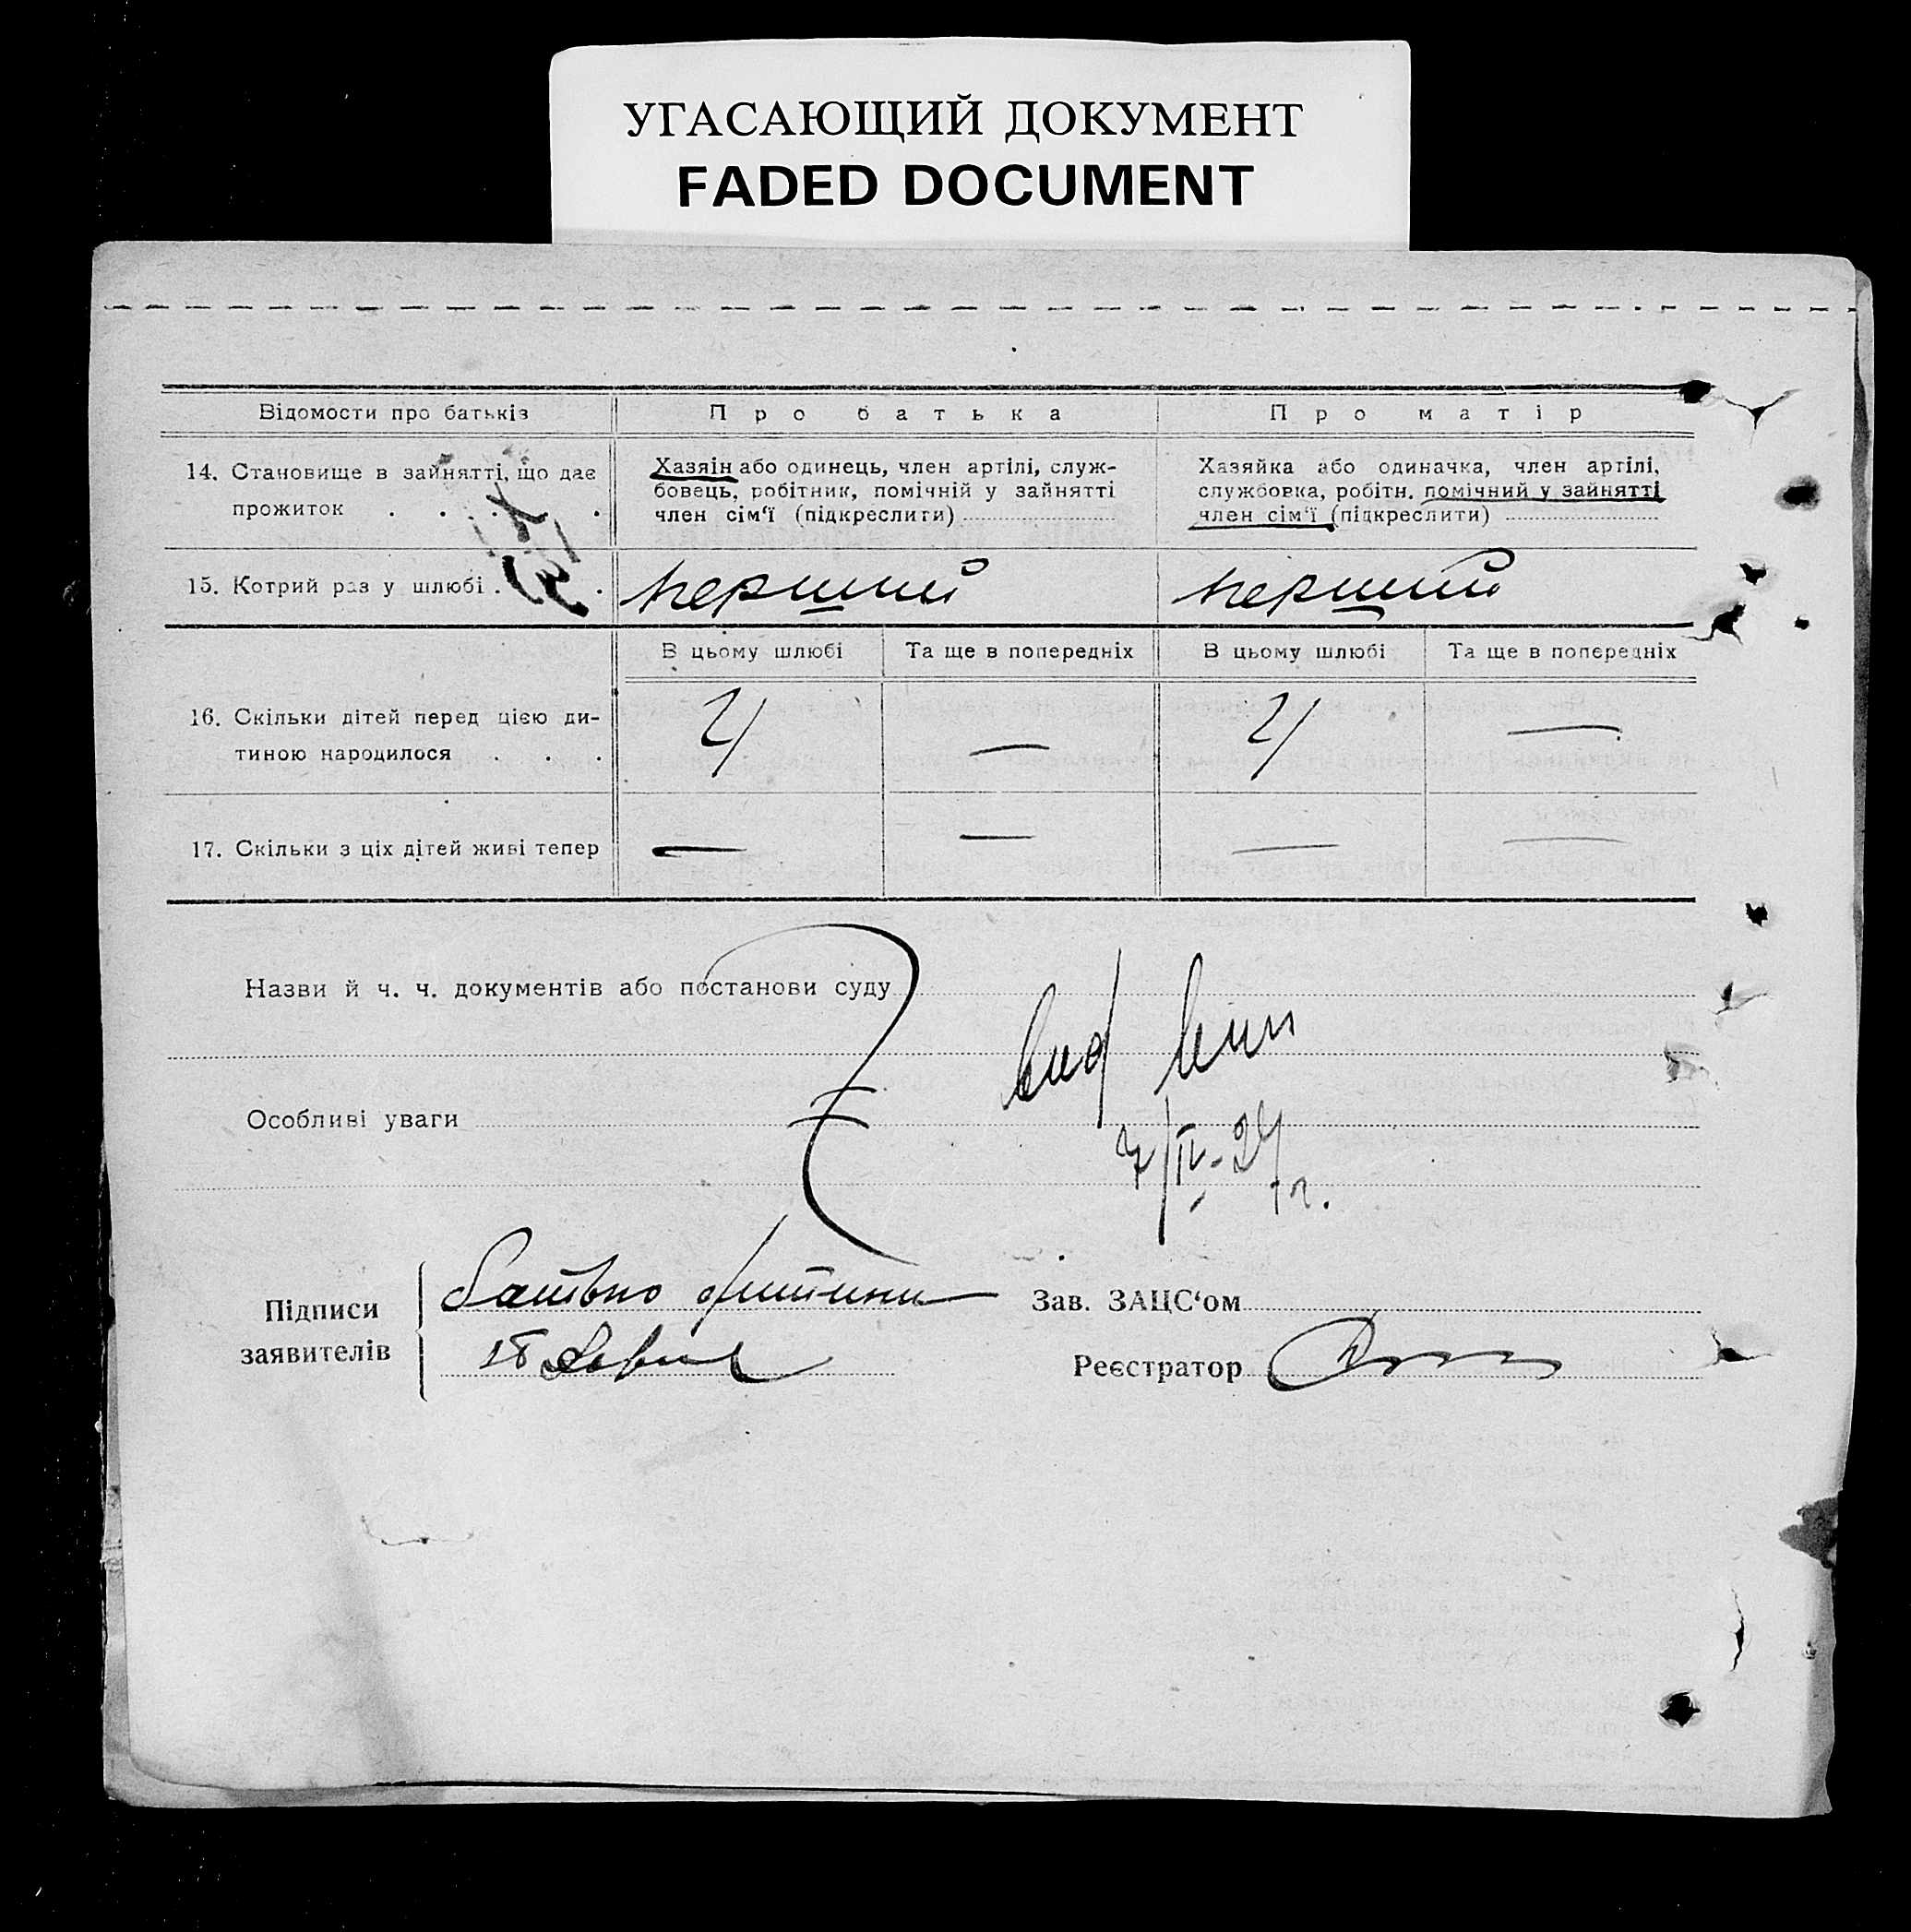 УГАСАЮЩИЙ ДОКУМЕНТ
FADED DOCUMENT
Відомости про батьків
Про батька
Про матір
14. Становище в зайнятті, що дає
прожиток . . . .
Хазяін або одинець, член артілі, служ-
бовець, робітник, помічній у зайнятті
член сім'ї (підкреслити)
Хазяйка або одиначка, член артілі,
службовка, робітн. помічний у зайнятті
член сім'ї (підкреслити)
15. Котрий раз у шлюбі . .
перший
перший
В цьому шлюбі
Та ще в попередніх
В цьому шлюбі
Та ще в попередніх
16. Скільки дітей перед цією ди-
тиною народилося . . .
—
—
17. Скільки з ціх дітей живі тепер
—
—
—
—
Назви й ч. ч. документів або постанови суду
Особливі уваги
Підписи
заявителів
батько дитини
Зав. ЗАЦС'ом
Реєстратор